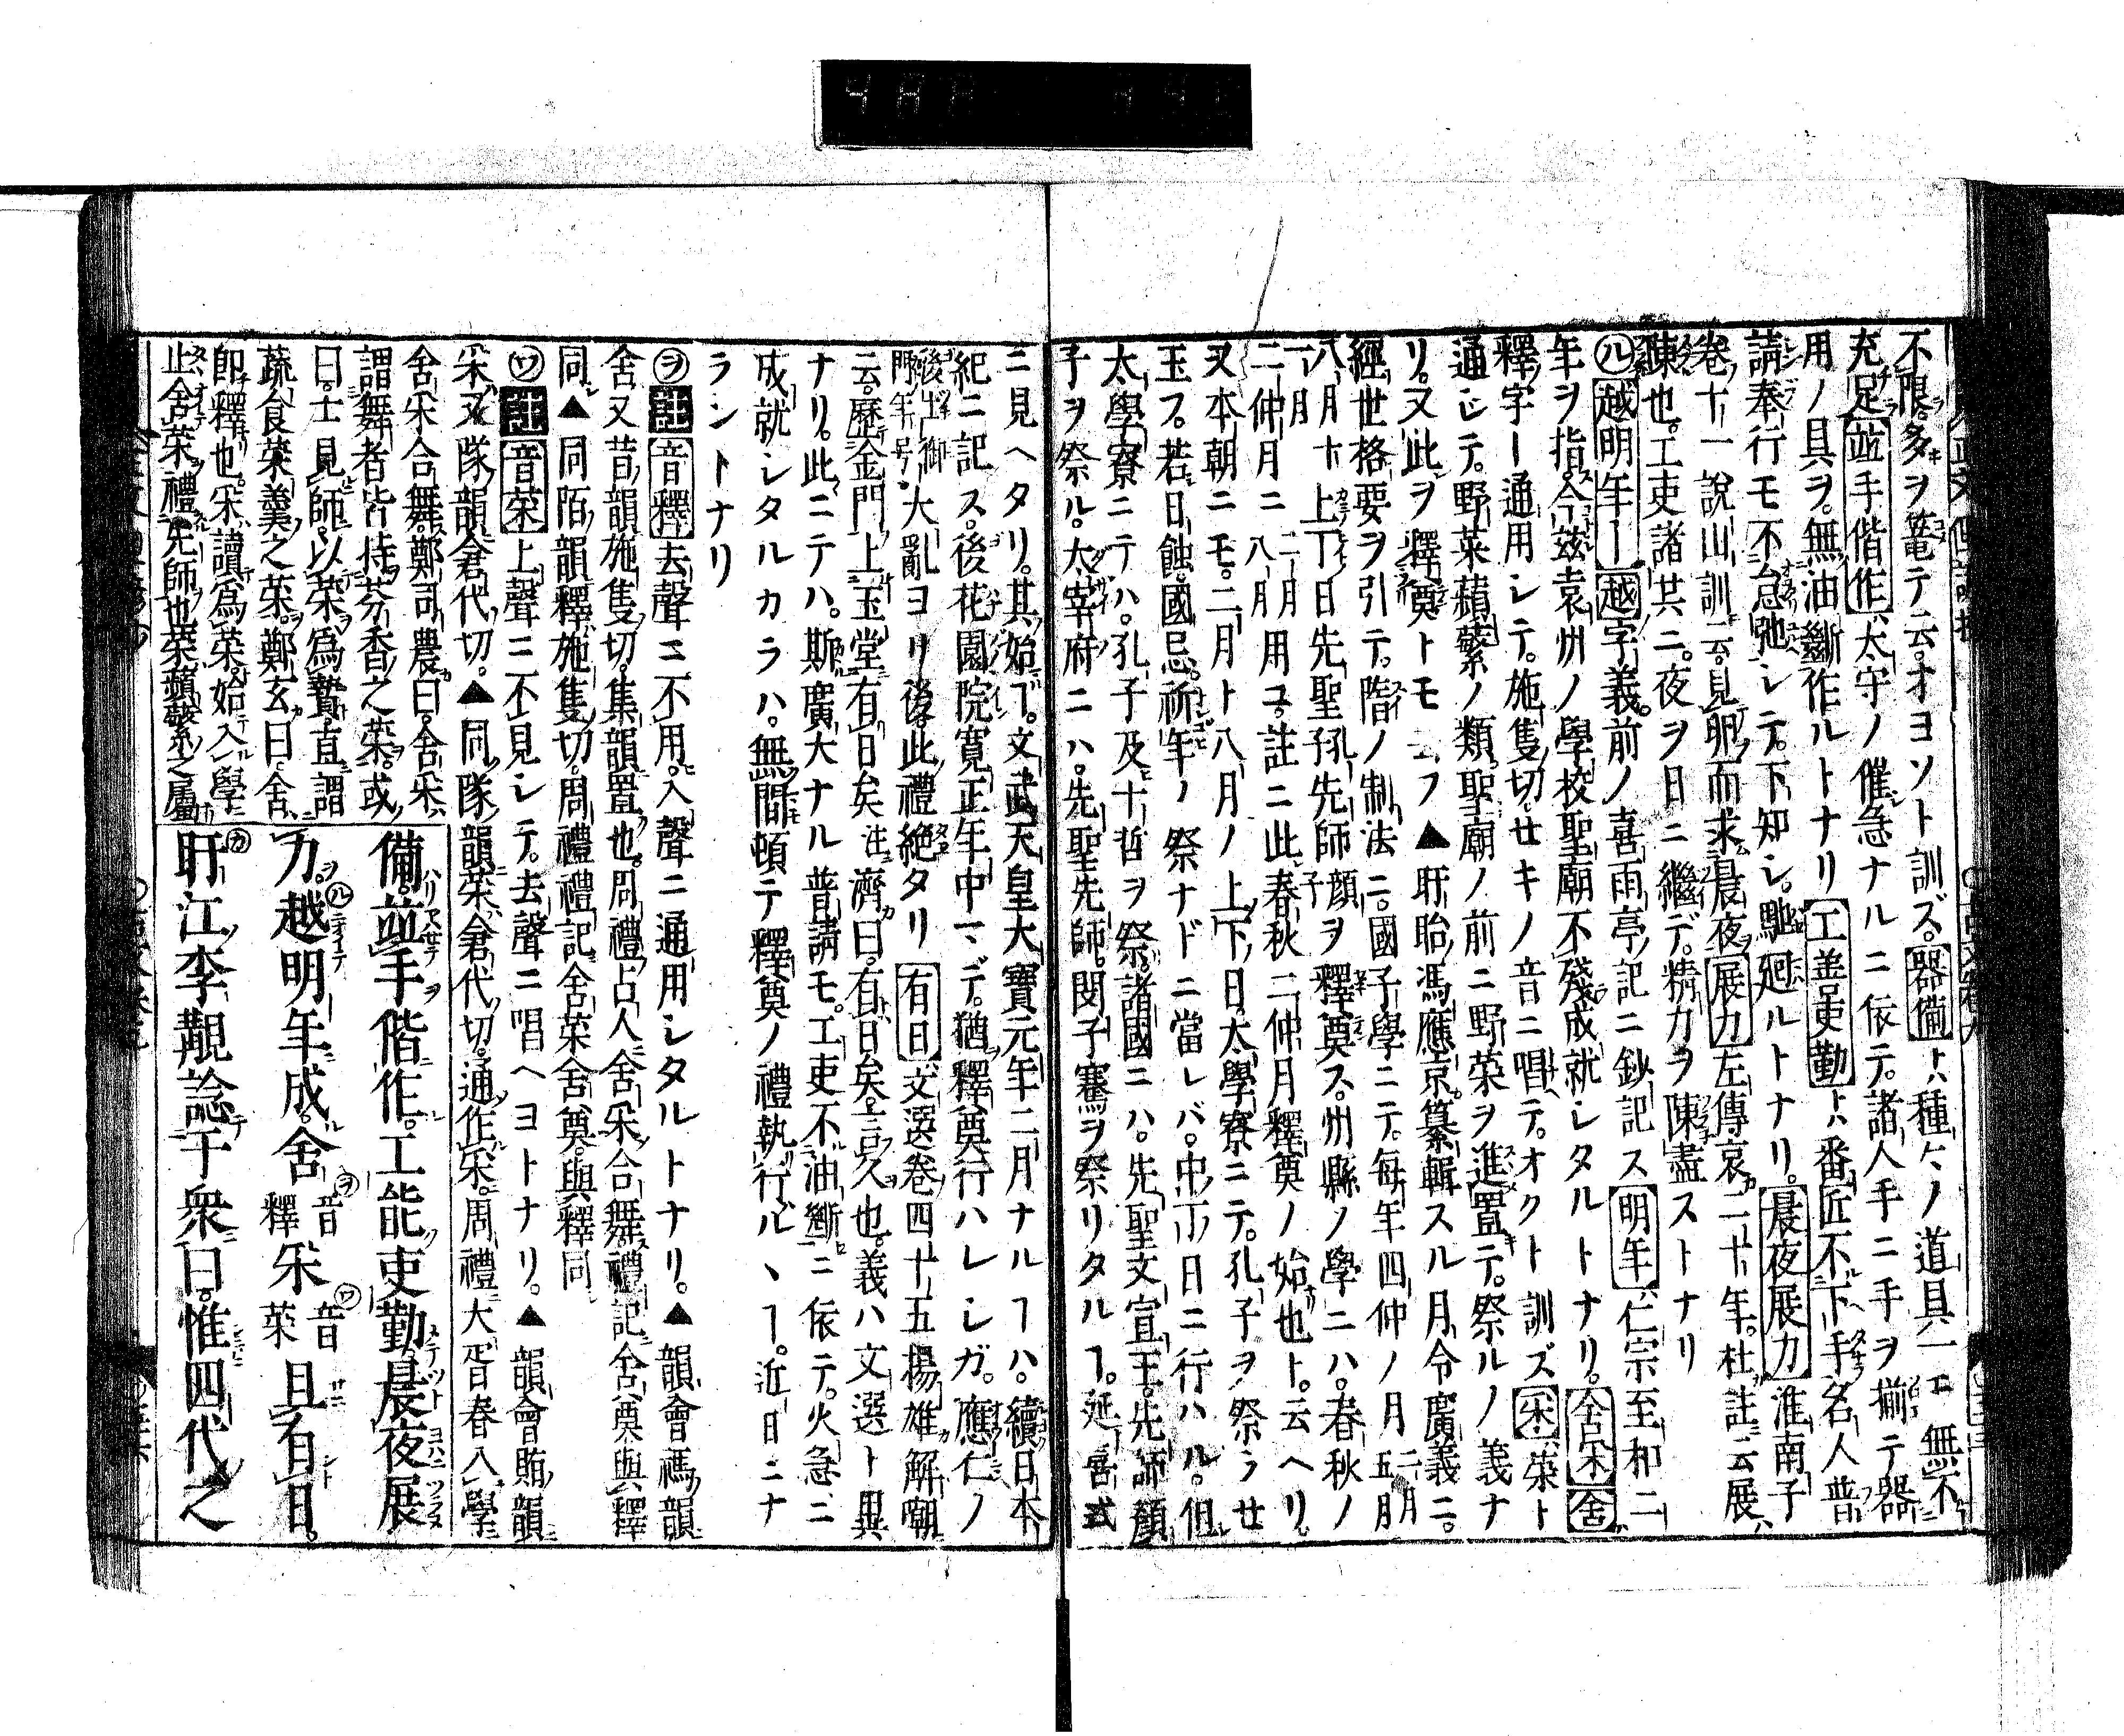 不限多ヲ篭テ云オヨソト訓ズ。器備トハ種々ノ道具一モ無不
充足並手偕作太守ノ催急ナルニ依テ。諸人手ニ手ヲ揃テ器
用ノ具ヲ。無油斷作ルトナリ工善吏勤トハ番匠不下手名人普
請奉行モ不怠弛シテ。下知シ。馳廻ルトナリ。晨夜展力淮南子
卷十一說山訓云。見卵而求晨夜展力左傳哀二十年。杜註云展
陳也。工吏諸共ニ。夜ヲ日ニ繼デ。精力ヲ陳盡ストナリ
㋩越明年ー越字義。前ノ喜雨亭記ニ鈔記ス明年仁宗至和二
年ヲ指。今兹袁州ノ學校聖廟不殘成就シタルトナリ。舍釆舍
釋字ー通用シテ。施隻切セキノ音ニ唱テ。オクト訓ズ釆菜ト
通ジテ。野菜蘋蘩ノ類聖廟ノ前ニ野菜ヲ進置テ。祭ルノ義ナ
リ。又此ヲ釋奠トモ云フ▲盱眙馮應京纂輯スル月令廣義ニ。
經世格要ヲ引テ。隋ノ制法ニ。國子學ニテ。每年四仲ノ月二月五月
八月十一月上丁日先聖孔子先師顏子ヲ釋奠ス。州縣ノ學ニハ。春秋ノ
二仲月ニ二月八月用ユ。註ニ此春秋二仲月釋奠ノ始也ト。云ヘリ。
又本朝ニモ。二月ト八月ノ上丁日。太學寮ニテ。孔子ヲ祭ラセ
玉フ。若日蝕。國忌。祈年ノ祭ナドニ當レバ。中丁日ニ行ハル。但
太學寮ニテハ。孔子及十哲ヲ祭。諸國ニハ。先聖文宣王。先師顏
子ヲ祭ル。太宰府ニハ。先聖先師。閔子騫ヲ祭リタルヿ。延喜式
ニ見ヘタリ。其始ハ。文武天皇大寶元年二月ナルヿハ。續日本
紀ニ記ス。後花園院寬正年中マデ。猶釋奠行ハレシガ。應仁ノ
後土御門年号大亂ヨリ後。此禮絕タリ有日文選卷四十五揚雄解嘲
云。歷金門上玉堂有日矣註濟曰。有日矣言久也義ハ文選ト異
ナリ。此ニテハ。斯廣大ナル普請モ。工吏不油斷ニ依テ。火急ニ
成就シタルカラハ。無間頓テ釋奠ノ禮執行ルヽヿ。近日ニナ
ラントナリ
㋾註音釋去聲ニ不用。入聲ニ通用シタルトナリ。▲韻會禡韻
舍又昔韻施隻切。集韻置也。周禮占人舍釆合舞。禮記舍奠與釋
同▲同陌韻釋施隻切。周禮禮記舍菜舍奠。與釋同
㋻註音菜上聲ニ不見シテ。去聲ニ唱ヘヨトナリ。▲韻會賄韻
釆又隊韻倉代切。▲同隊韻菜倉代切。通作釆。周禮大胥春入學
舍釆合舞。鄭司農曰。舍釆
謂舞者皆持芬香之菜。或
曰。士見師。以菜爲贄。直謂
蔬食菜羹之菜。鄭玄曰。舍
卽釋也。釆讀爲菜。始入學
止舍菜禮先師也菜蘋蘩之屬
備。並手偕作。工能吏勤晨夜展
力。越明年成。舍音釋釆音菜且有日。
盱江李覯諗于衆曰。惟四代之